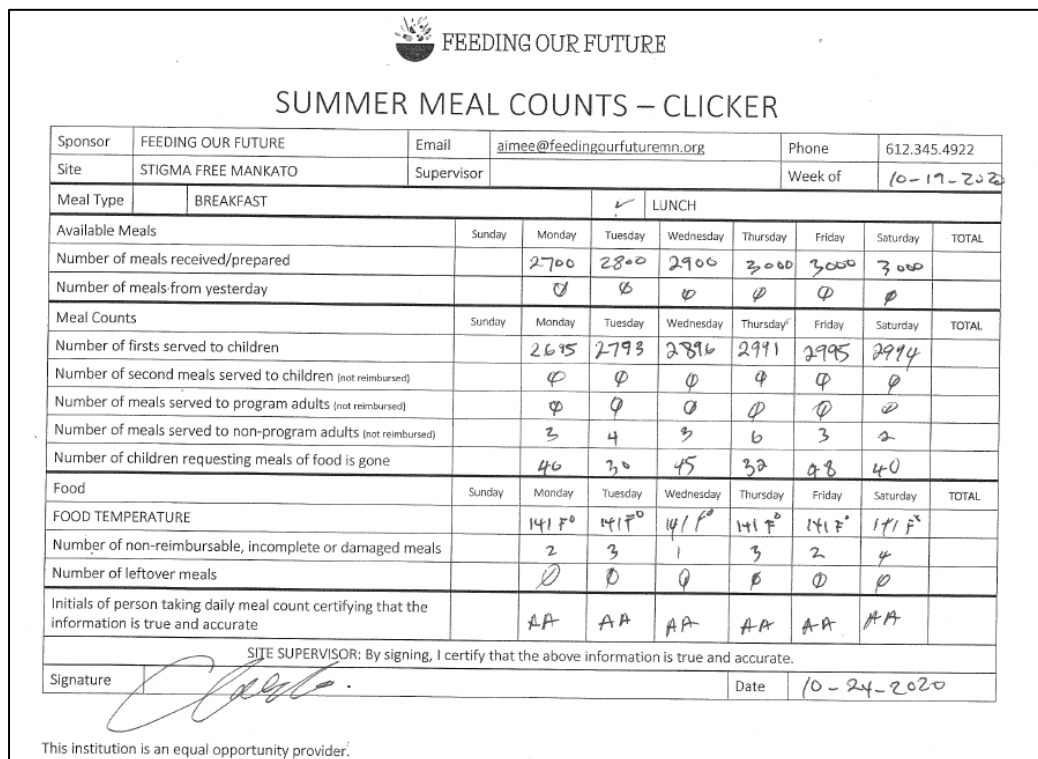 FEEDING OUR FUTURE
SUMMER MEAL COUNTS – CLICKER
Sponsor FEEDING OUR FUTURE Email aimee@feedingourfuturemn.org Phone 612.345.4922
Site STIGMA FREE MANKATO Supervisor Week of 10-19-2020
Meal Type BREAKFAST ✓ LUNCH
Available Meals Sunday Monday Tuesday Wednesday Thursday Friday Saturday TOTAL
Number of meals received/prepared 2700 2800 2900 3000 3000 3000
Number of meals from yesterday 0 0 0 0 0 0
Meal Counts Sunday Monday Tuesday Wednesday Thursday Friday Saturday TOTAL
Number of firsts served to children 2695 2793 2896 2991 2995 2994
Number of second meals served to children (not reimbursed) 0 0 0 0 0 0
Number of meals served to program adults (not reimbursed) 0 0 0 0 0 0
Number of meals served to non-program adults (not reimbursed) 3 4 3 6 3 2
Number of children requesting meals of food is gone 40 30 45 32 48 40
Food Sunday Monday Tuesday Wednesday Thursday Friday Saturday TOTAL
FOOD TEMPERATURE 141 F° 141 F° 141 F° 141 F° 141 F° 141 F°
Number of non-reimbursable, incomplete or damaged meals 2 3 1 3 2 4
Number of leftover meals 0 0 0 0 0 0
Initials of person taking daily meal count certifying that the
information is true and accurate AA AA AA AA AA AA
SITE SUPERVISOR: By signing, I certify that the above information is true and accurate.
Signature Date 10-24-2020
This institution is an equal opportunity provider.